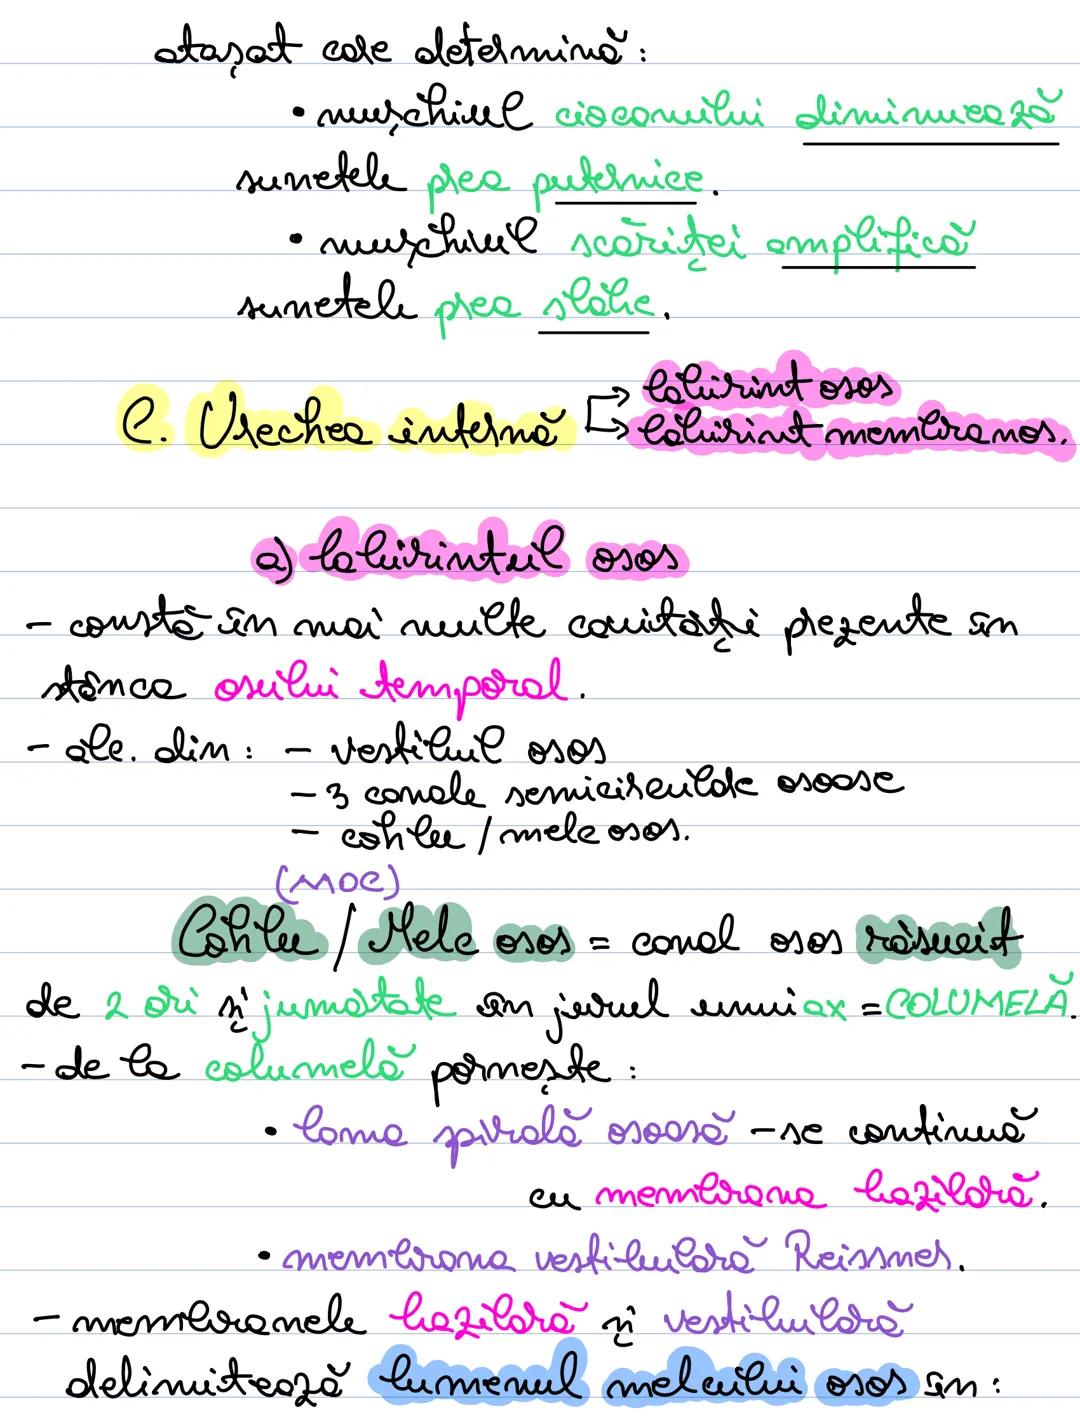 atașat care determină:
• mușchiul ciocanului diminuează
sunetele prea puternice.
• mușchiul scăriței amplifică
sunetele prea slabe.
C. Urechea internă → labirint osos
→ labirint membranos.
a) labirintul osos
- constă în mai multe cavități prezente în
stânca osului temporal.
- alc. din: - vestibul osos
- 3 canale semicirculare osoase
- cohlee / melc osos.
(MOC)
Cohlee / Melc osos = canal osos răsucit
de 2 ori și jumătate în jurul unui ax = COLUMELĂ.
- de la columelă pornește:
• lama spirală osoasă - se continuă
cu membrana bazilară.
• membrana vestibulară Reissner.
- membranele bazilară și vestibulară
delimitează lumenul melcului osos în: